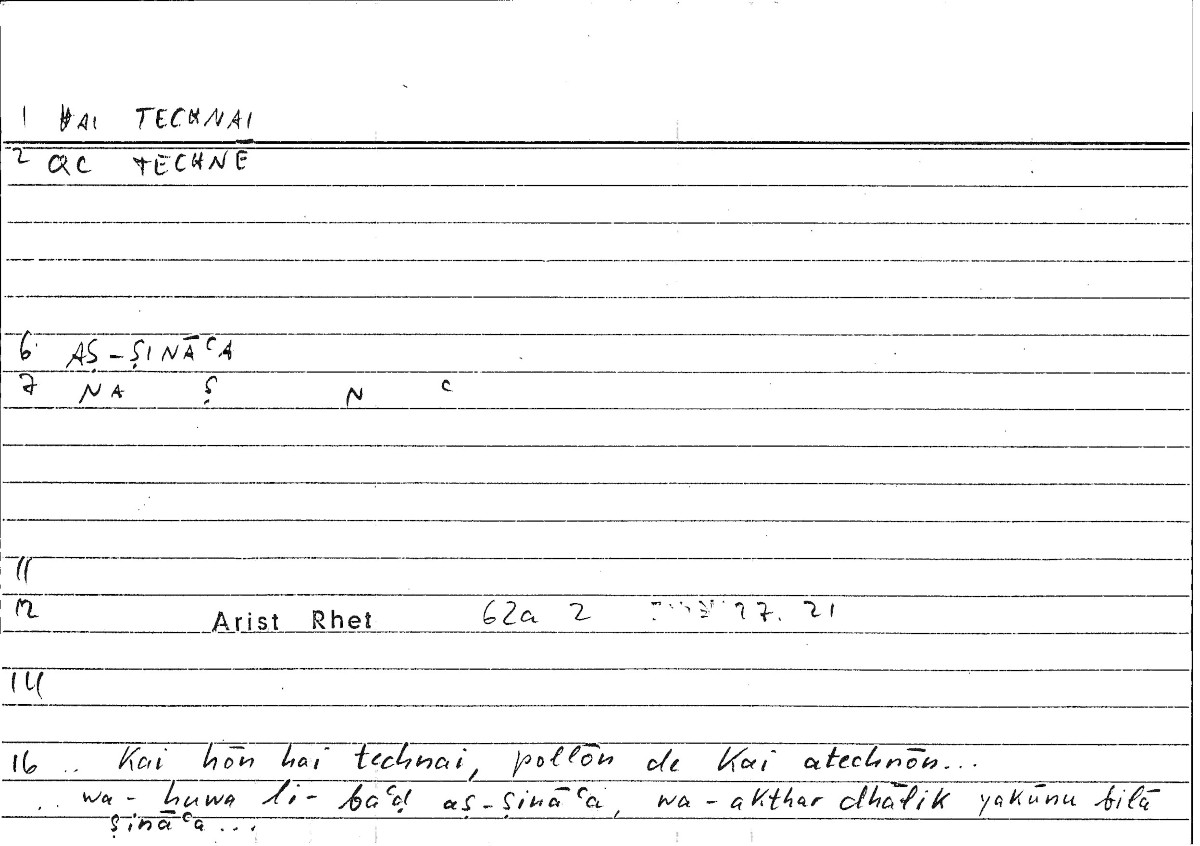 1 HAI TECHNAI
2 QC TECHNĒ
6 AṢ-ṢINĀʿA
7 NA Ṣ N ʿ
11
12 Arist Rhet 62a 2 27. 21
14
16 .. Kai hōn hai technai, pollōn de Kai atechnōn...
.. wa-huwa li-baʿḍ aṣ-ṣināʿa, wa-akthar dhālik yakūnu bilā
ṣināʿa...